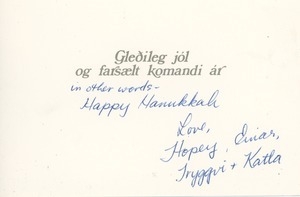 Gleðileg jól
og farsælt komandi ár
in other words-
Happy Hanukkah
Love,
Hopey, Einar,
Tryggvi + Katla